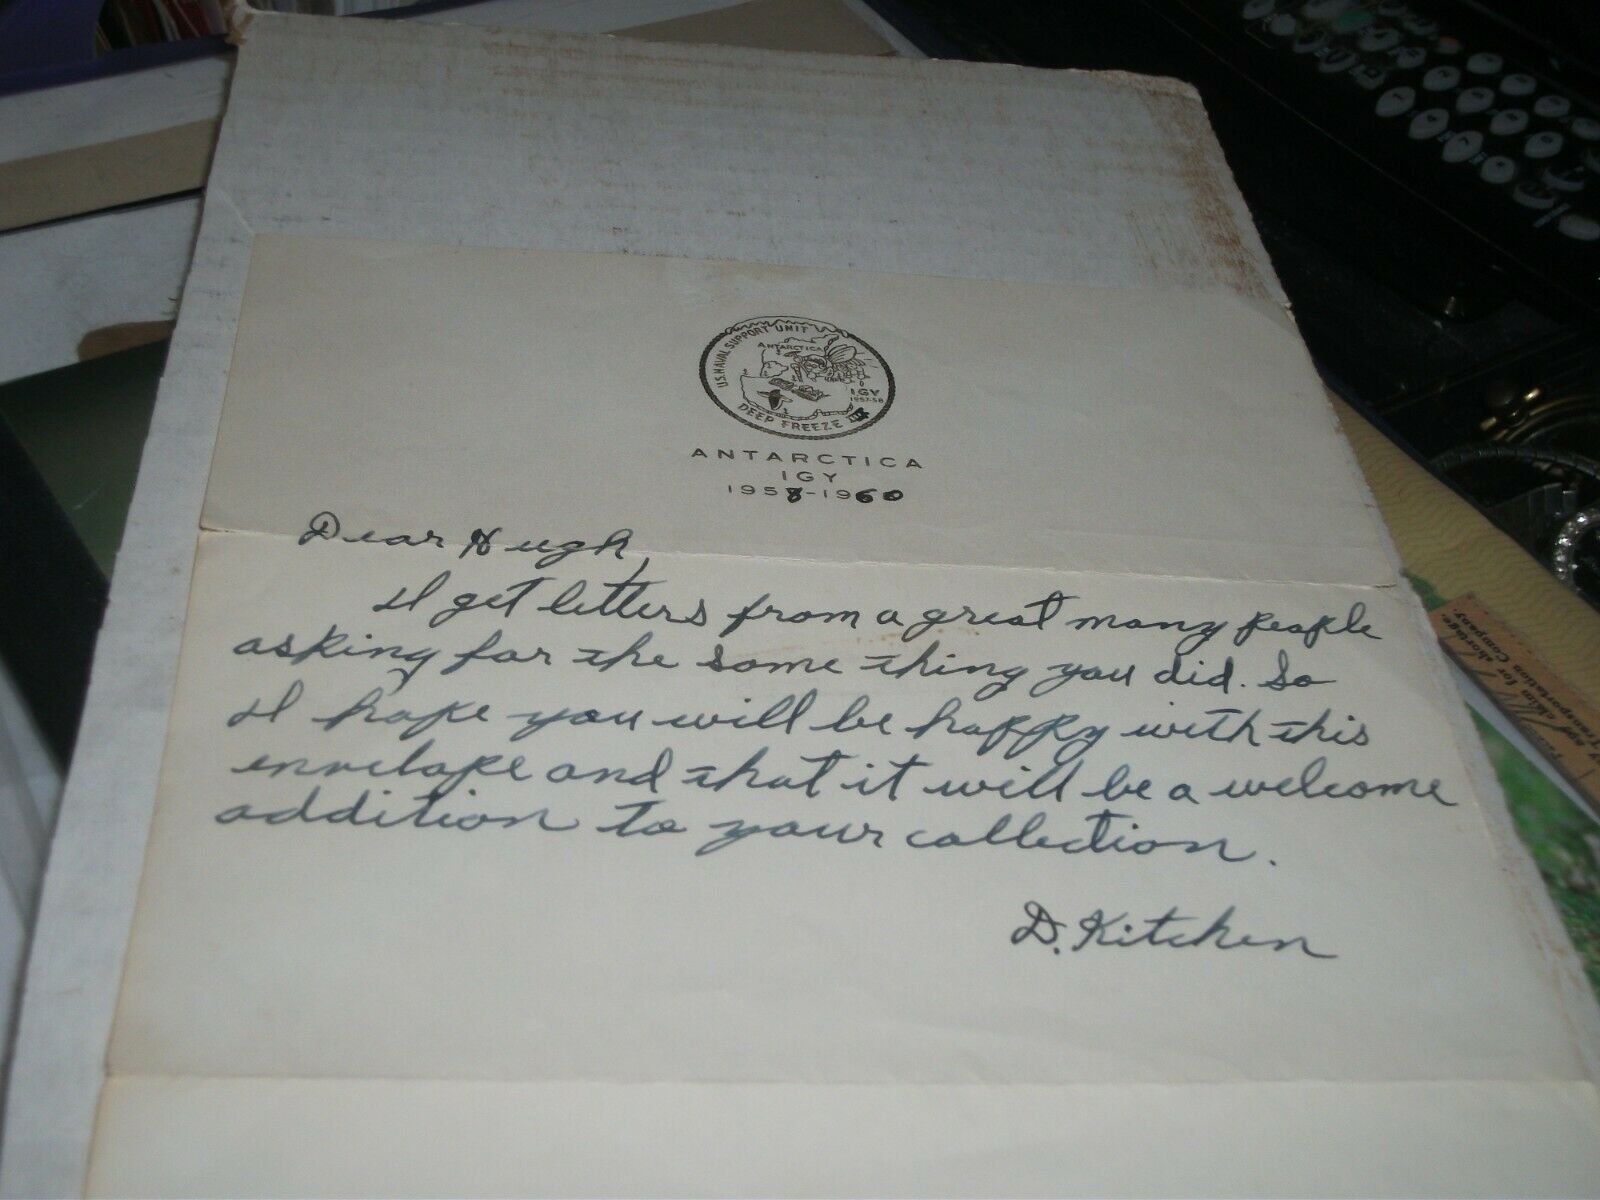 U.S. NAVAL SUPPORT UNIT
ANTARCTICA
IGY
1957-58
DEEP FREEZE
ANTARCTICA
IGY
1958-1960
Dear Hugh,
I get letters from a great many people
asking for the same thing you did. So
I hope you will be happy with this
envelope and that it will be a welcome
addition to your collection.
D. Kitchen
for shortage
Transportation Company